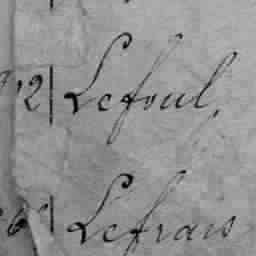 12 Lefoul,
6 Lefrais